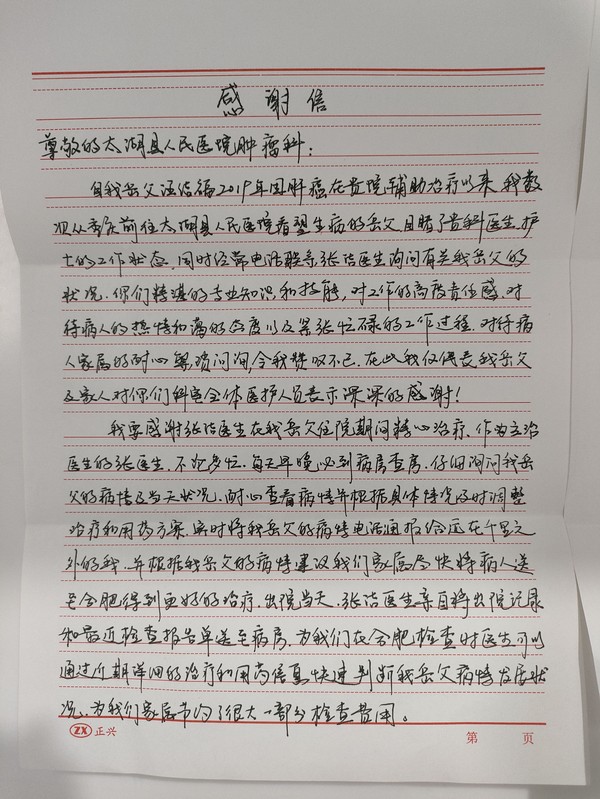 感谢信
尊敬的太湖县人民医院肿瘤科：
自我岳父汪结福2019年因肺癌在贵院辅助治疗以来，我数
次从重庆前往太湖县人民医院看望生病的岳父，目睹了贵科医生、护
士的工作状态，同时经常电话联系张洁医生询问有关我岳父的
状况，你们精湛的专业知识和技能，对工作的高度责任感，对
待病人的热情和蔼的态度以及紧张忙碌的工作过程，对待病
人家属的耐心繁琐问询令我赞叹不已，在此我仅代表我岳父
及家人对你们科室全体医护人员表示深深的感谢！
我要感谢张洁医生在我岳父住院期间精心治疗，作为主治
医生的张医生，不论多忙，每天早晚必到病房查房，仔细询问我岳
父的病情及当天状况，耐心查看病情并根据具体情况及时调整
治疗和用药方案，实时将我岳父的病情电话通报给远在千里之
外的我，并根据我岳父的病情建议我们家属尽快将病人送
至合肥得到更好的治疗，出院当天，张洁医生亲自将出院记录
和最近检查报告单送至病房，为我们在合肥检查时医生可以
通过近期详细的治疗和用药信息快速判断我岳父病情发展状
况，为我们家属节约了很大一部分检查费用。
ZX 正兴
第 页